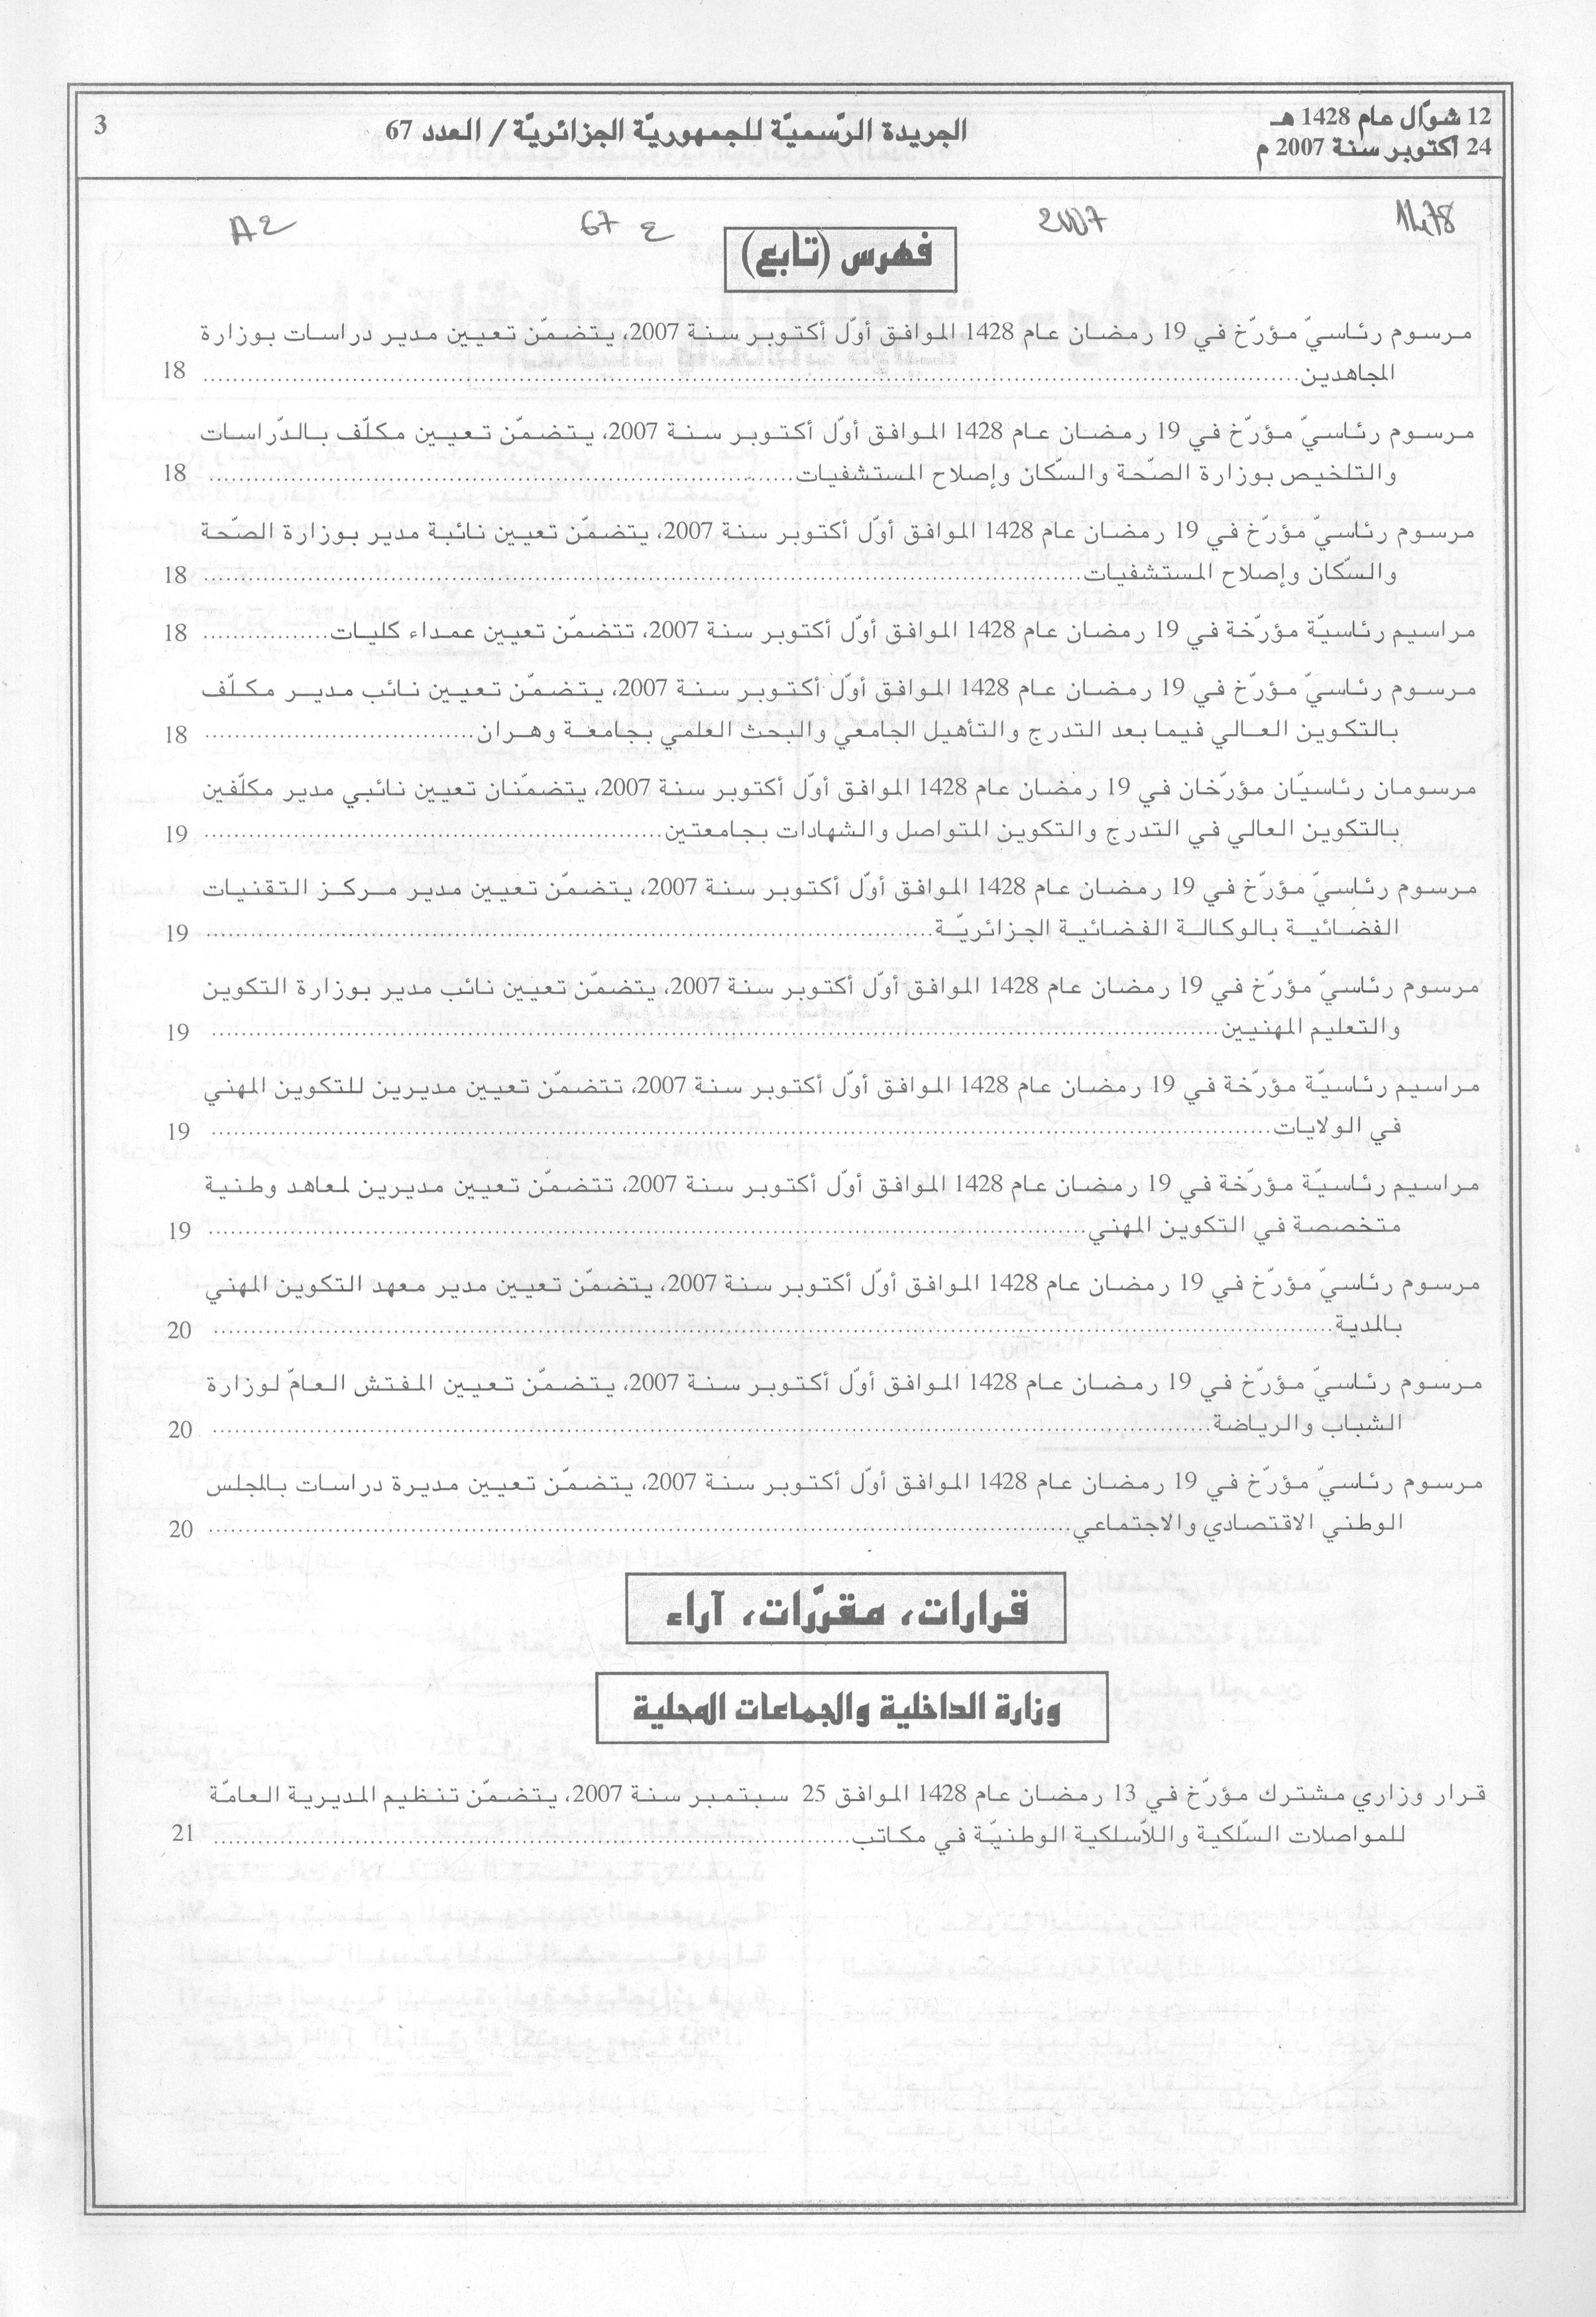 12 شوّال عام 1428 هـ
24 أكتوبر سنة 2007 م
الجريدة الرّسميّة للجمهوريّة الجزائريّة / العدد 67
3
1478
2007
67 ع
A2
فهرس (تابع)
مرسوم رئاسيّ مؤرّخ في 19 رمضان عام 1428 الموافق أوّل أكتوبر سنة 2007، يتضمّن تعيين مدير دراسات بوزارة
المجاهدين.......... 18
مرسوم رئاسيّ مؤرّخ في 19 رمضان عام 1428 الموافق أوّل أكتوبر سنة 2007، يتضمّن تعيين مكلّف بالدّراسات
والتلخيص بوزارة الصّحة والسّكان وإصلاح المستشفيات.......... 18
مرسوم رئاسيّ مؤرّخ في 19 رمضان عام 1428 الموافق أوّل أكتوبر سنة 2007، يتضمّن تعيين نائبة مدير بوزارة الصّحة
والسّكان وإصلاح المستشفيات.......... 18
مراسيم رئاسيّة مؤرّخة في 19 رمضان عام 1428 الموافق أوّل أكتوبر سنة 2007، تتضمّن تعيين عمداء كليات.......... 18
مرسوم رئاسيّ مؤرّخ في 19 رمضان عام 1428 الموافق أوّل أكتوبر سنة 2007، يتضمّن تعيين نائب مدير مكلّف
بالتكوين العالي فيما بعد التدرج والتأهيل الجامعي والبحث العلمي بجامعة وهران.......... 18
مرسومان رئاسيّان مؤرّخان في 19 رمضان عام 1428 الموافق أوّل أكتوبر سنة 2007، يتضمّنان تعيين نائبي مدير مكلّفين
بالتكوين العالي في التدرج والتكوين المتواصل والشهادات بجامعتين.......... 19
مرسوم رئاسيّ مؤرّخ في 19 رمضان عام 1428 الموافق أوّل أكتوبر سنة 2007، يتضمّن تعيين مدير مركز التقنيات
الفضائية بالوكالة الفضائية الجزائريّة.......... 19
مرسوم رئاسيّ مؤرّخ في 19 رمضان عام 1428 الموافق أوّل أكتوبر سنة 2007، يتضمّن تعيين نائب مدير بوزارة التكوين
والتعليم المهنيين.......... 19
مراسيم رئاسيّة مؤرّخة في 19 رمضان عام 1428 الموافق أوّل أكتوبر سنة 2007، تتضمّن تعيين مديرين للتكوين المهني
في الولايات.......... 19
مراسيم رئاسيّة مؤرّخة في 19 رمضان عام 1428 الموافق أوّل أكتوبر سنة 2007، تتضمّن تعيين مديرين لمعاهد وطنية
متخصصة في التكوين المهني.......... 19
مرسوم رئاسيّ مؤرّخ في 19 رمضان عام 1428 الموافق أوّل أكتوبر سنة 2007، يتضمّن تعيين مدير معهد التكوين المهني
بالمدية.......... 20
مرسوم رئاسيّ مؤرّخ في 19 رمضان عام 1428 الموافق أوّل أكتوبر سنة 2007، يتضمّن تعيين المفتش العامّ لوزارة
الشباب والرياضة.......... 20
مرسوم رئاسيّ مؤرّخ في 19 رمضان عام 1428 الموافق أوّل أكتوبر سنة 2007، يتضمّن تعيين مديرة دراسات بالمجلس
الوطني الاقتصادي والاجتماعي.......... 20
قرارات، مقرّرات، آراء
وزارة الداخلية والجماعات المحلية
قرار وزاري مشترك مؤرّخ في 13 رمضان عام 1428 الموافق 25 سبتمبر سنة 2007، يتضمّن تنظيم المديرية العامّة
للمواصلات السّلكية واللاّسلكية الوطنيّة في مكاتب.......... 21